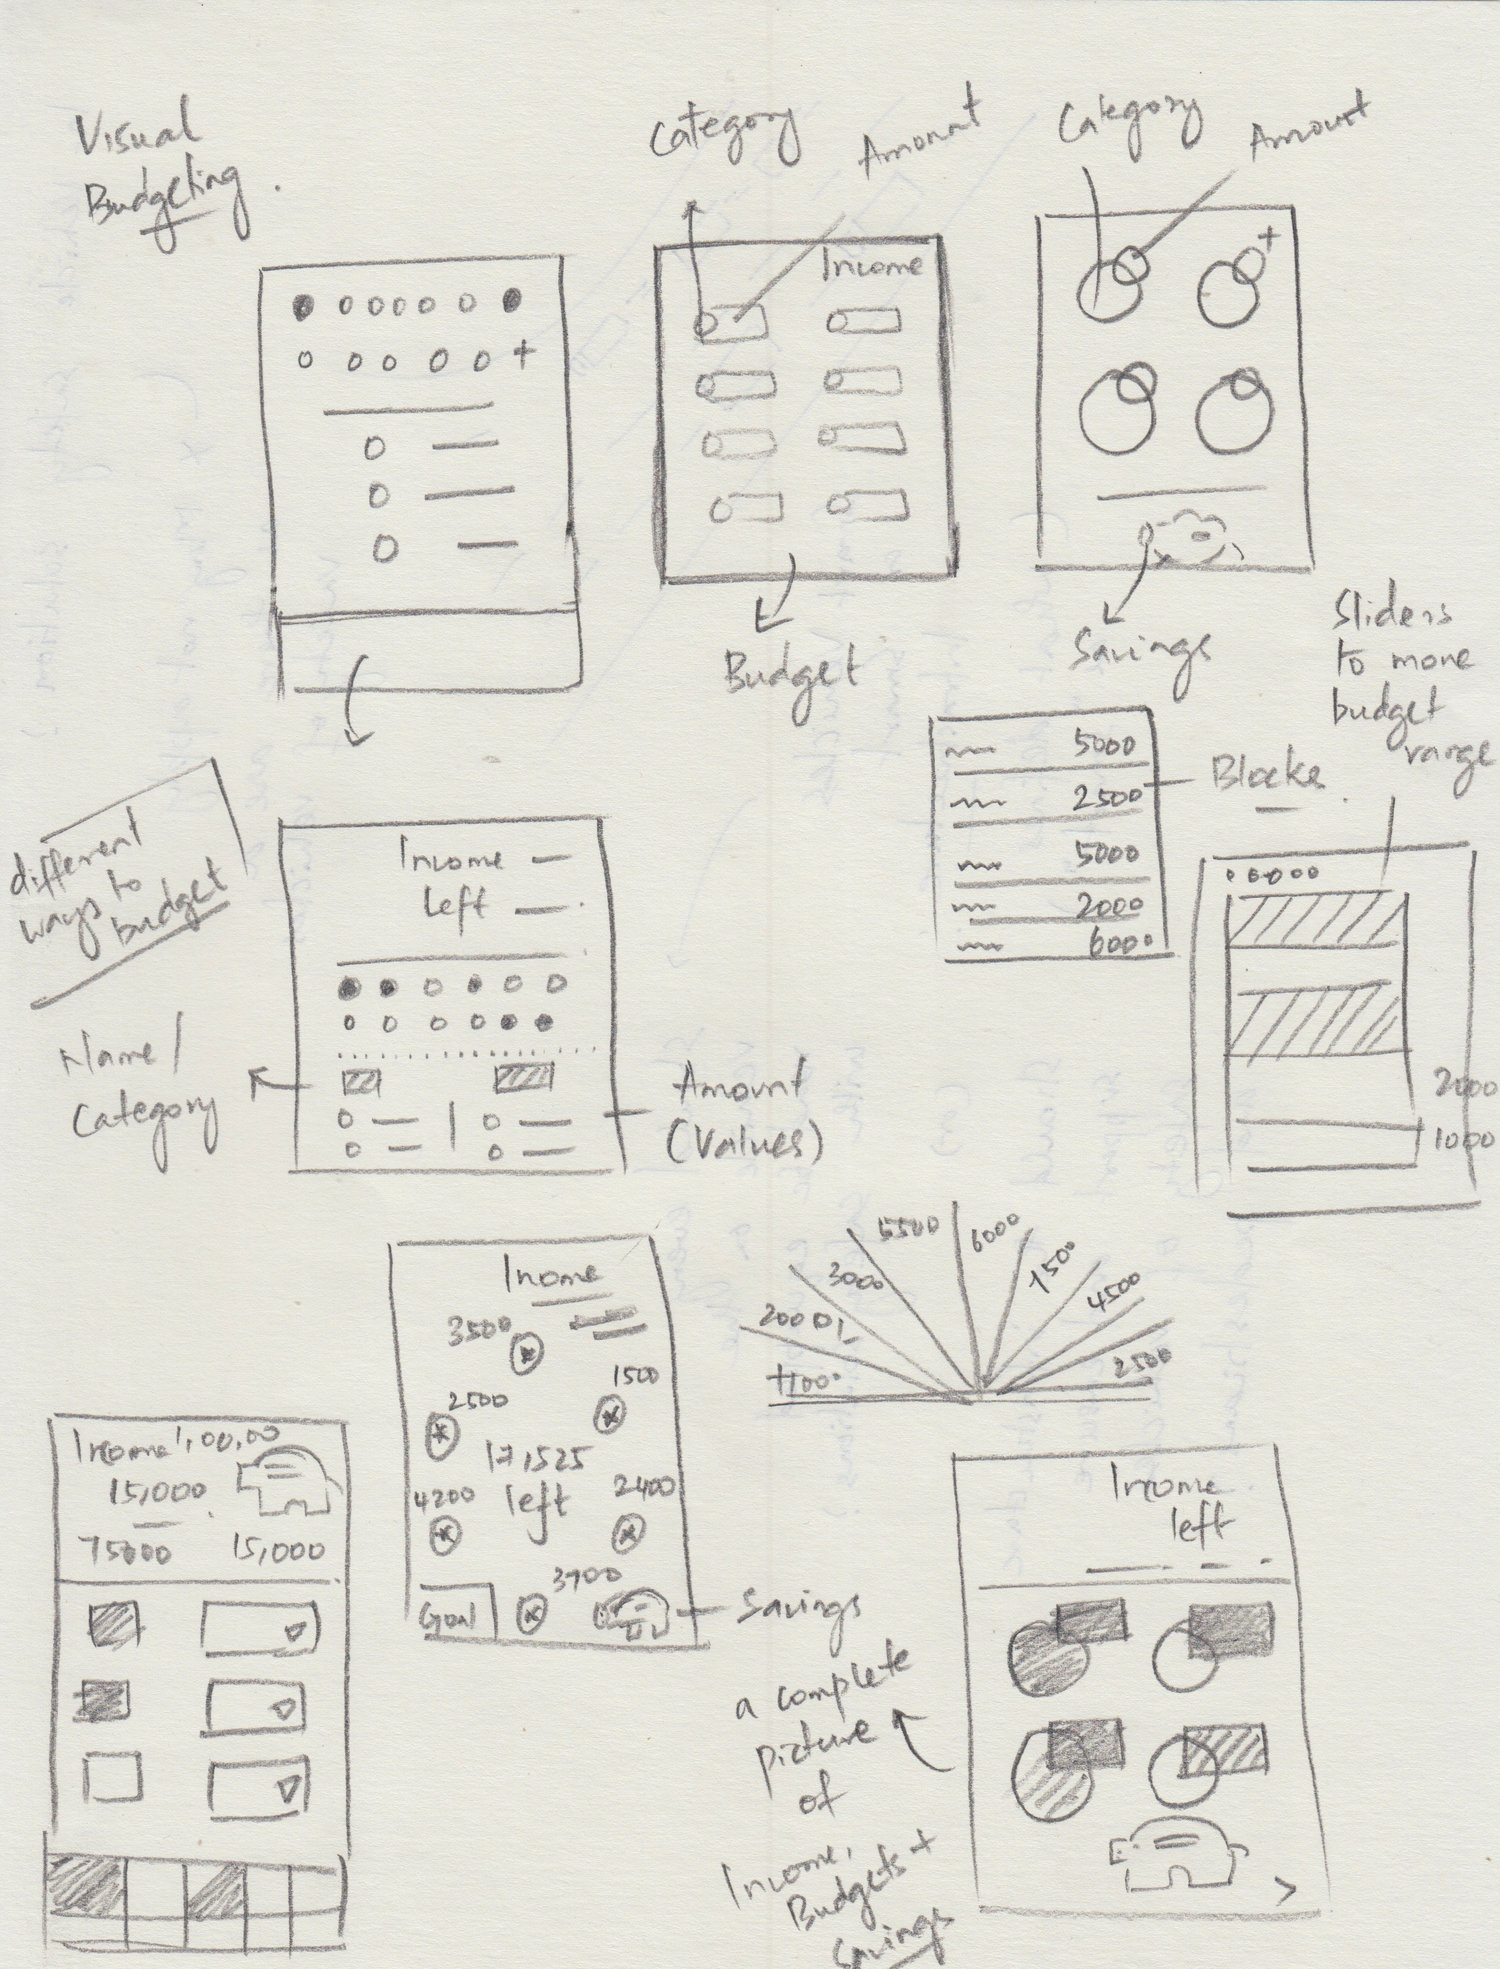 Visual
Budgeting.
Category
Amount
Category
Amount
Income
+
+
Budget
Savings
Sliders
to move
budget
range
5000
2500
5000
2000
6000
Blocks
different
ways to
budget
Income
Left
Name/
Category
Amount
(Values)
2000
1000
Inome
3500
1500
2500
17,1525
left
4200
2400
3700
Goal
Savings
2000/-
3000
5500
6000
750
4500
2500
Income 1,00,00
15,000
75000 15,000
Income
left
a complete
picture
of
Income,
Budgets +
Savings
>